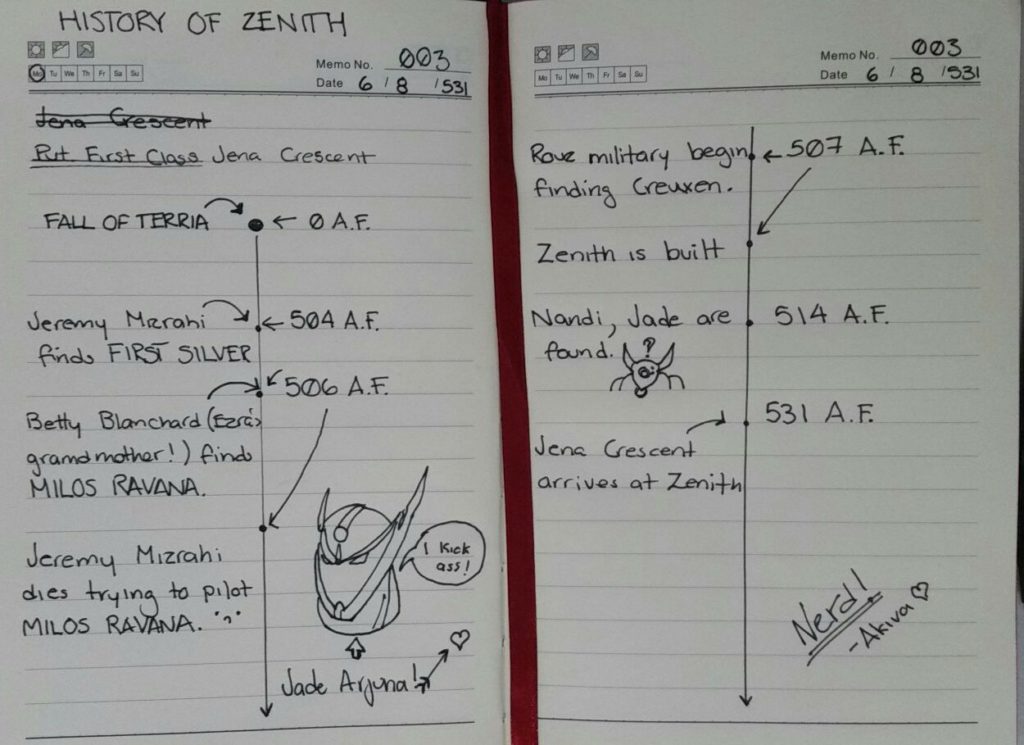 HISTORY OF ZENITH
Memo No. 003
Mo Tu We Th Fr Sa Su
Date 6 / 8 / 531
Jena Crescent
Pvt First Class Jena Crescent
FALL OF TERRIA ← 0 A.F.
Jeremy Mizrahi ← 504 A.F.
finds FIRST SILVER
506 A.F.
Betty Blanchard (Ezra's
grandmother!) finds
MILOS RAVANA.
Jeremy Mizrahi
dies trying to pilot
MILOS RAVANA.
I kick
ass!
Jade Arjuna!
Memo No. 003
Mo Tu We Th Fr Sa Su
Date 6 / 8 / 531
Rove military begin ← 507 A.F.
finding Creuxen.
Zenith is built
Nandi, Jade are 514 A.F.
found.
?
531 A.F.
Jena Crescent
arrives at Zenith
Nerd!
-Akiva ♡